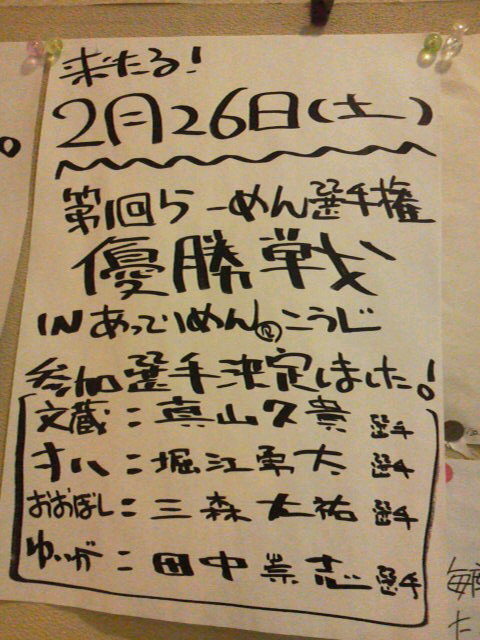 来たる!
2月26日(土)
第1回らーめん選手権
優勝戦
INあってりめん®こうじ
参加選手決定しました!
文蔵:真山久貴 選手
すハ:堀江勇太 選手
おおぼし:三森大祐 選手
ゆいが:田中崇志 選手
毎
た